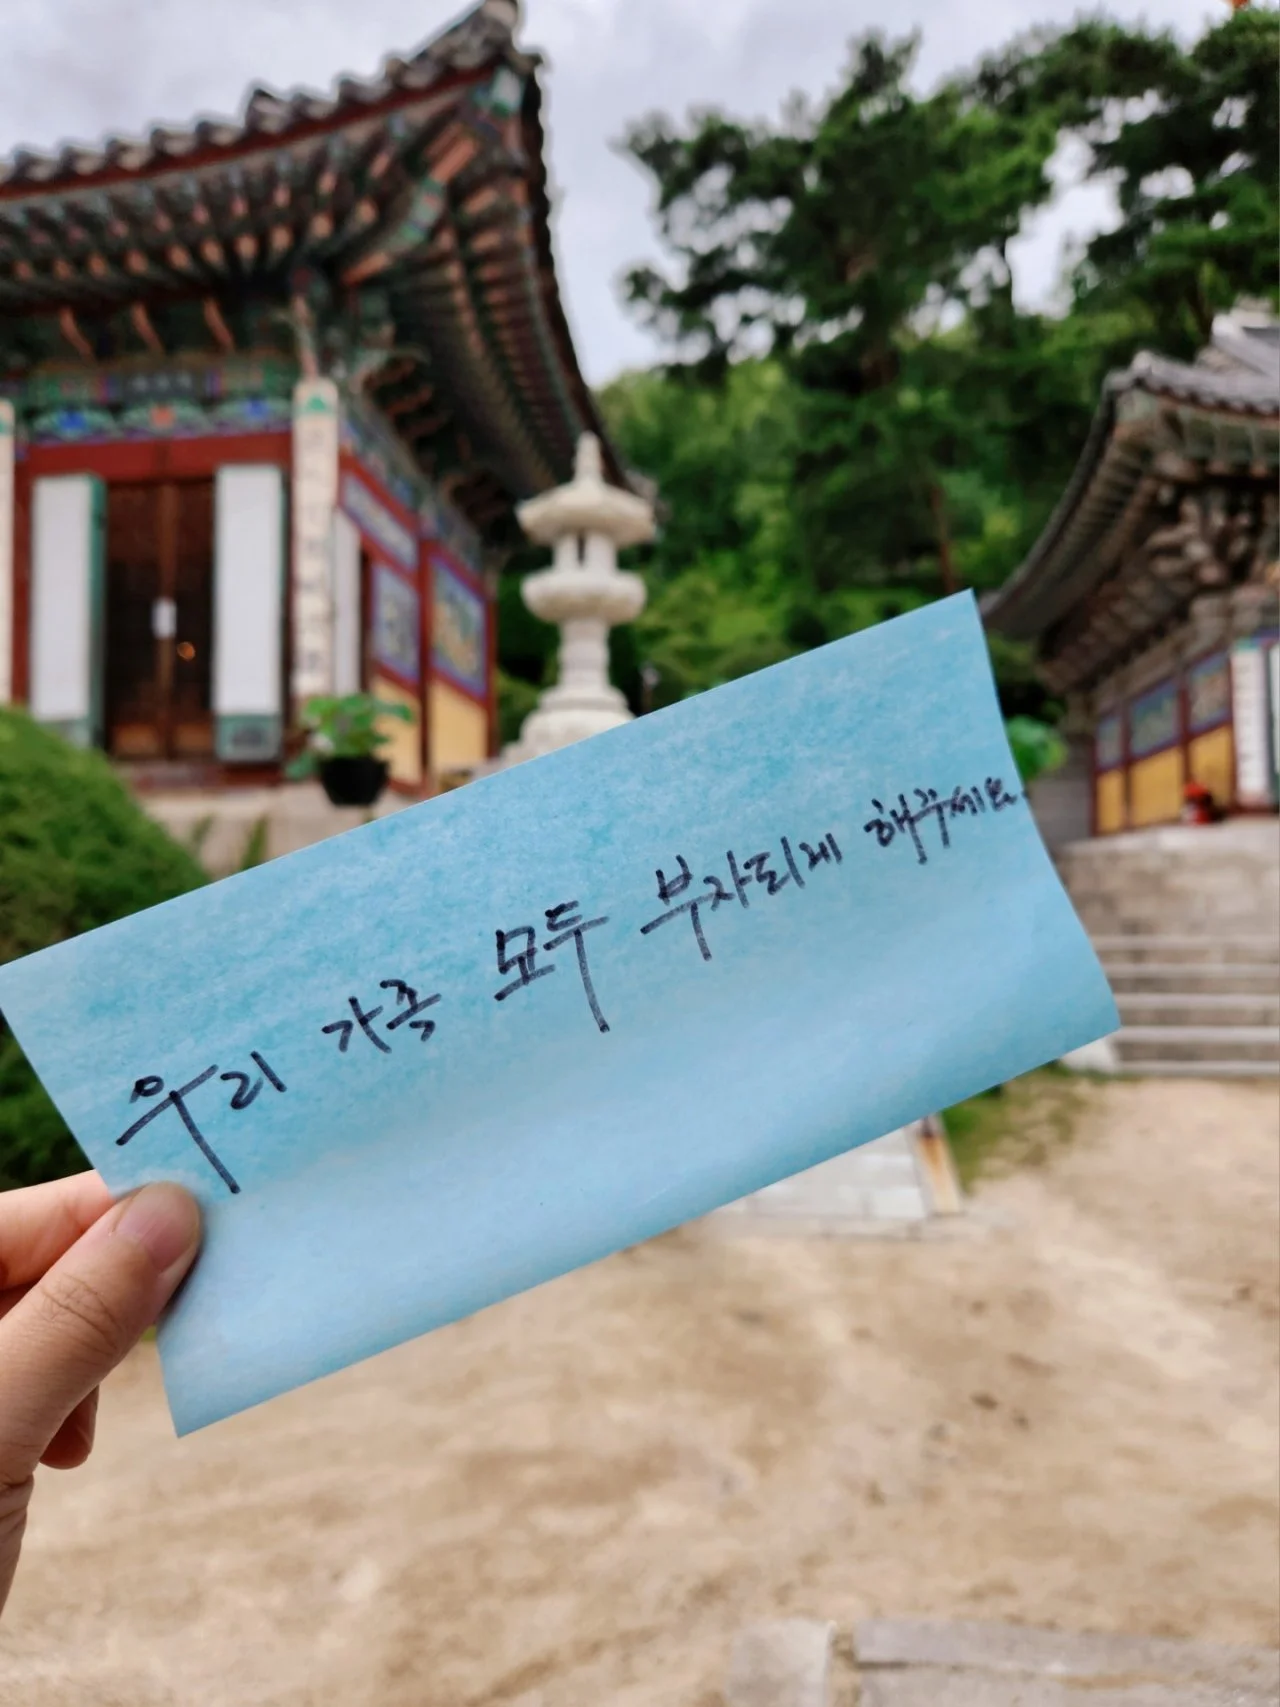 우리 가족 모두 부자되게 해주세요